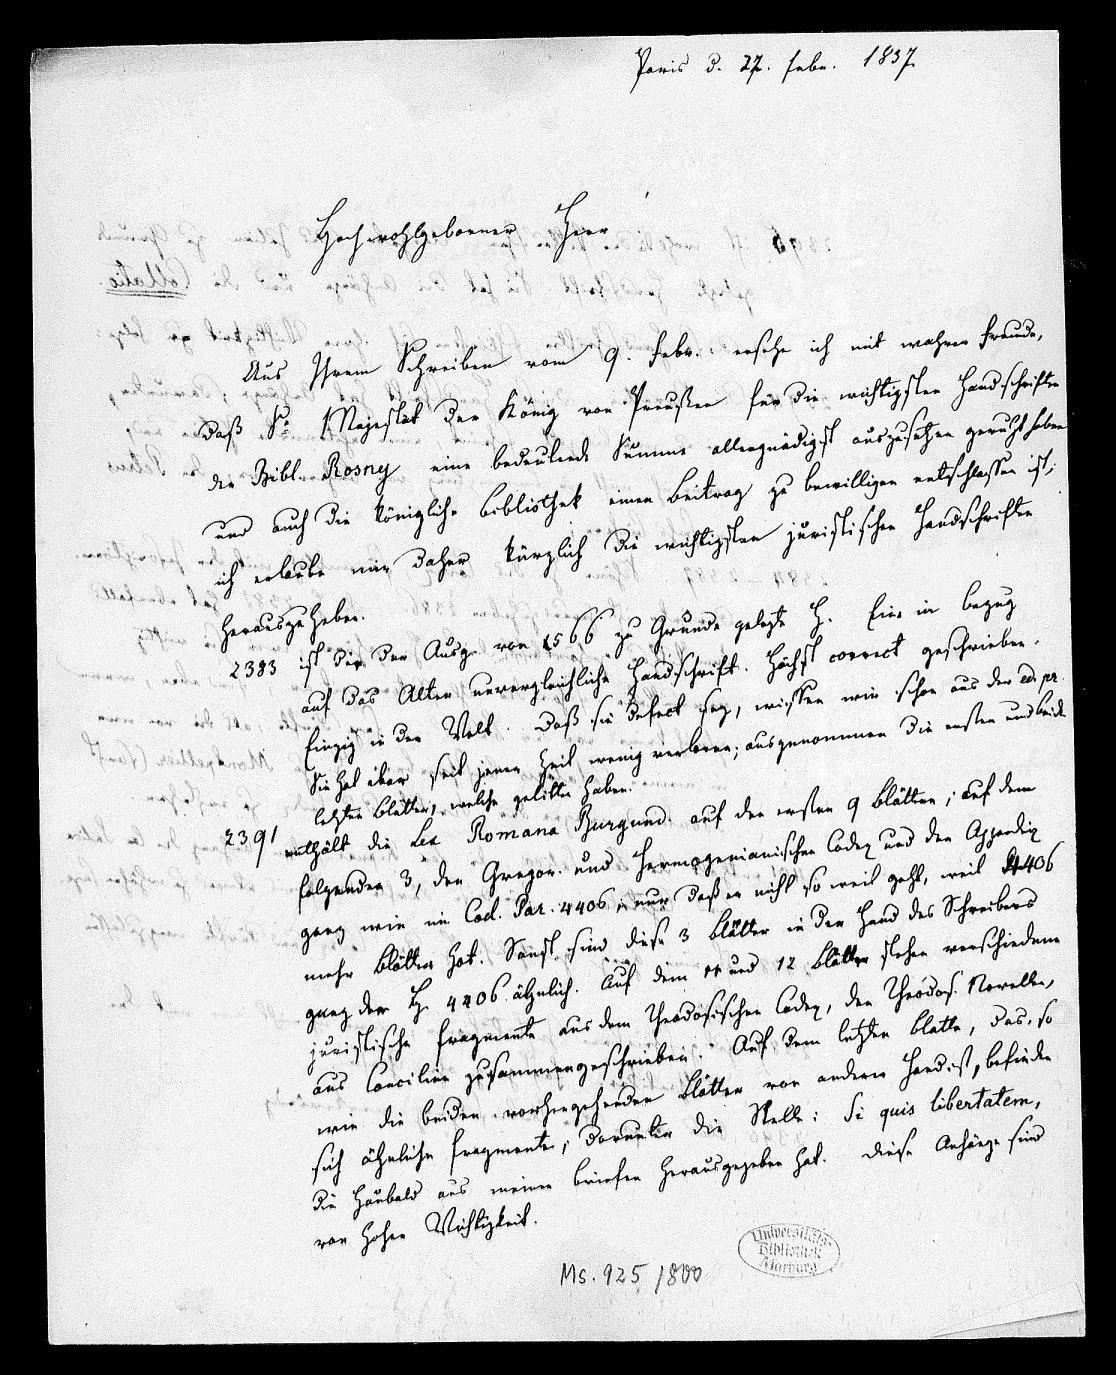 Paris d. 27. febr. 1837.
Hochwohlgeborner Herr
Aus Ihrem Schreiben vom 9. febr. ersehe ich mit wahrer Freude,
daß Se Majestät der König von Preußen für die wichtigsten Handschriften
der Bibl. Rosny eine bedeutende Summe allergnädigst auszusetzen geruht haben
und auch die königliche Bibliothek einen Beitrag zu bewilligen entschlossen ist;
ich erlaube mir daher kürzlich die wichtigsten juristischen Handschriften
herauszuheben.
2383 ist die der Ausg. von 1566 zu Grunde gelegte H. Eine in bezug
auf das Alter unvergleichliche Handschrift. Höchst correct geschrieben.
Einzig in der Welt. Daß sie defect sey, wissen wir schon aus der ed. pr.
Sie hat aber seit jener Zeit wenig verloren; ausgenommen die ersten und beide
letzten Blätter, welche gelitten haben.
2391 enthält die Lex Romana Burgund. auf den ersten 9 Blättern; auf dem
folgenden 3, den Gregor. und Hermogenianischen Codex und den Appendix
ganz wie im Cod. Par. 4406; nur daß er nicht so weit geht, weil 4406
mehr Blätter hat. Sonst sind diese 3 Blätter in der Hand des Schreibers
ganz der H. 4406 ähnlich. Auf dem 11 und 12 Blatte stehen verschiedene
juristische Fragmente aus dem Theodosischen Codex, den Theodos. Novellen,
aus Concilien zusammengeschrieben. Auf dem letzten Blatte, das, so
wie die beiden vorhergehenden Blätter von anderer Hand ist, befinden
sich ähnliche Fragmente; darunter die Stelle: Si quis libertatem,
die Haubold aus meinen Briefen herausgegeben hat. Diese Anhänge sind
von hoher Wichtigkeit.
Universitäts-
Bibliothek
Marburg
Ms. 925/800